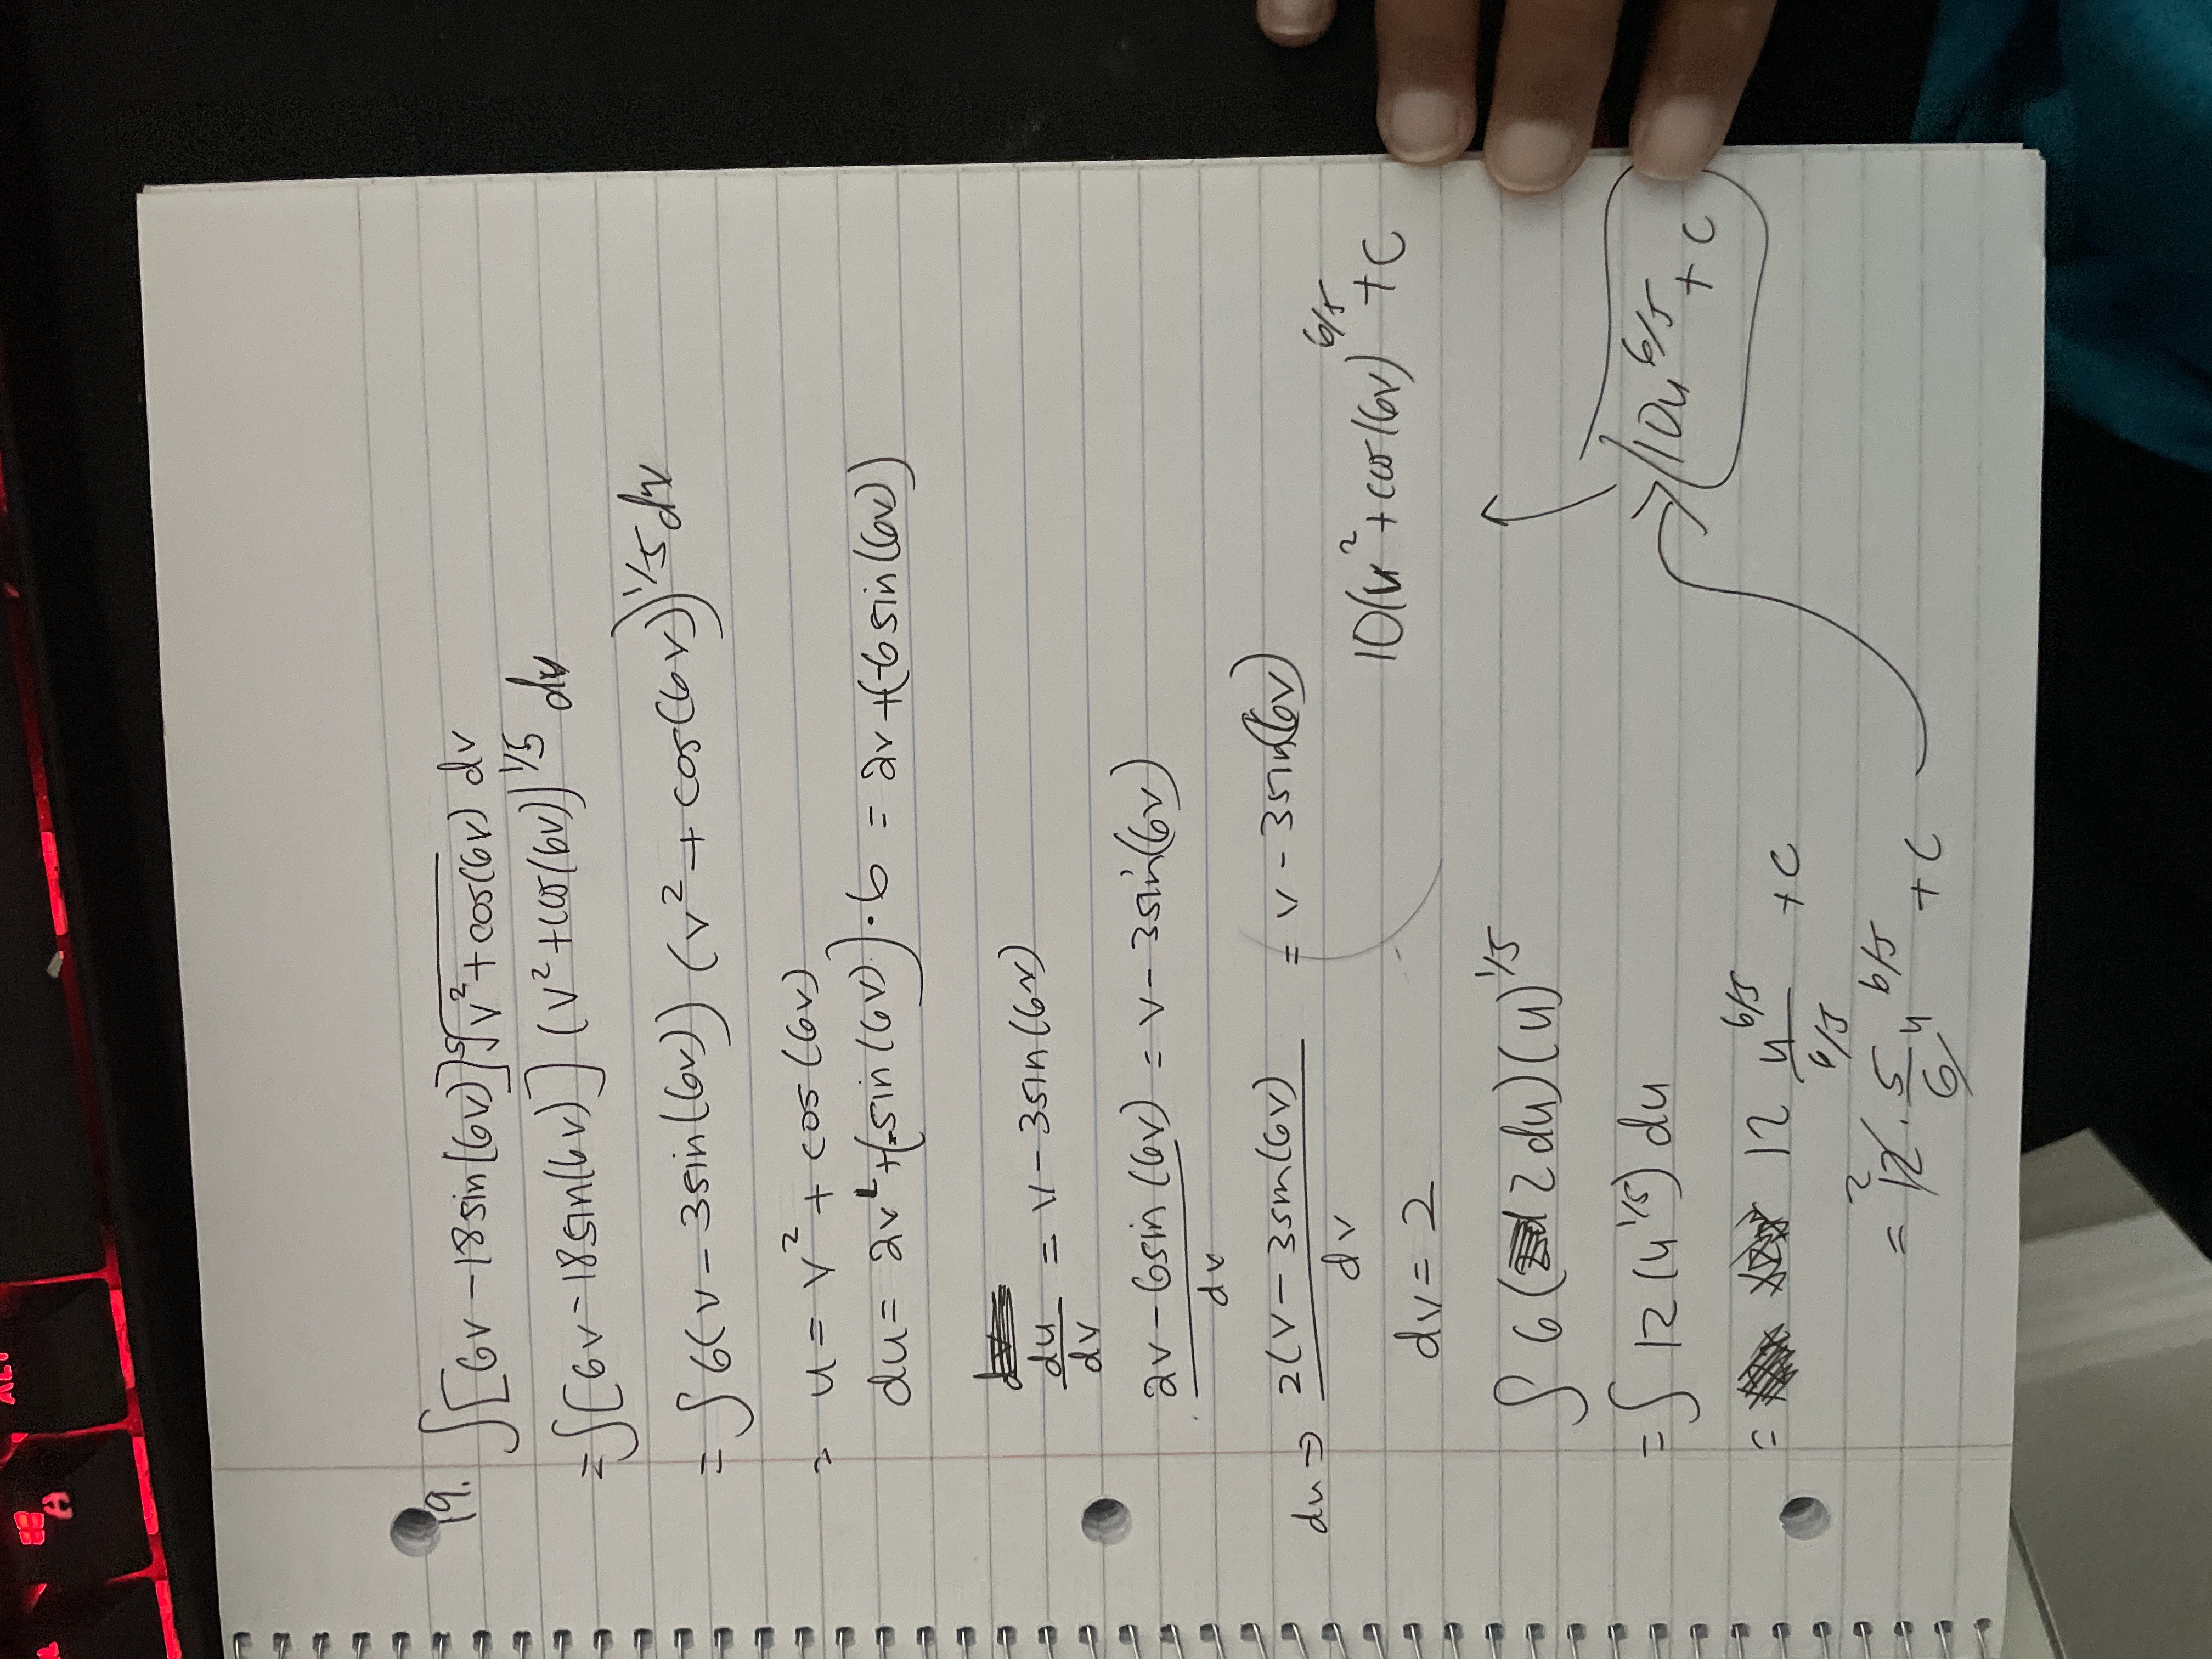 ALT
19. ∫[6v-18sin(6v)]⁵√v²+cos(6v) dv
=∫[6v-18sin(6v)] (v²+cos(6v))^1/5 dv
= ∫6(v-3sin(6v)) (v²+cos(6v))^1/5 dv
= u = v² + cos(6v)
du = 2v¹+(-sin(6v))·6 = 2v+(-6sin(6v))
du/dv = v-3sin(6v)
2v-6sin(6v)/dv = v-3sin(6v)
du ⇒ 2(v-3sin(6v)/dv = v-3sin(6v)
10(v²+cos(6v)^6/5+C
dv = 2
∫ 6 (2du)(u)^1/5
= ∫ 12 (u^1/5) du
10u^6/5+C
= 12 u^6/5/6/5 +C
= 2 12 · 5/6 u^6/5 +C